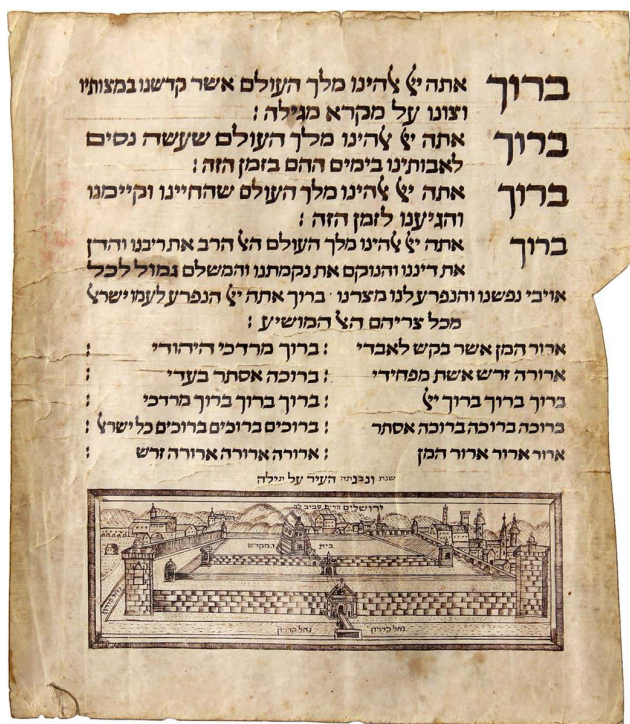 ברוך אתה יי ﭏהינו מלך העולם אשר קדשנו במצותיו
וצונו על מקרא מגילה :
ברוך אתה יי ﭏהינו מלך העולם שעשה נסים
לאבותינו בימים ההם בזמן הזה :
ברוך אתה יי ﭏהינו מלך העולם שהחיינו וקיימנו
והגיענו לזמן הזה :
ברוך אתה יי ﭏהינו מלך העולם הﭏ הרב את ריבנו והדן
את דיננו והנוקם את נקמתנו והמשלם גמול לכל
אויבי נפשנו והנפרע לנו מצרנו ברוך אתה יי הנפרע לעמו ישרﭏ
מכל צריהם הﭏ המושיע :
ארור המן אשר בקש לאבדי : ברוך מרדכי היהודי :
ארורה זרש אשת מפחידי : ברוכה אסתר בעדי :
ברוך ברוך ברוך יי : ברוך ברוך ברוך מרדכי :
ברוכה ברוכה ברוכה אסתר : ברוכים ברוכים ברוכים כל ישרﭏ :
ארור ארור ארור המן : ארורה ארורה ארורה זרש :
שנת ונבנתה העיר על תילה
ירושלים הרים סביב לה
בית המקדש
נחל קדרון
נחל קדרון נחל קדרון